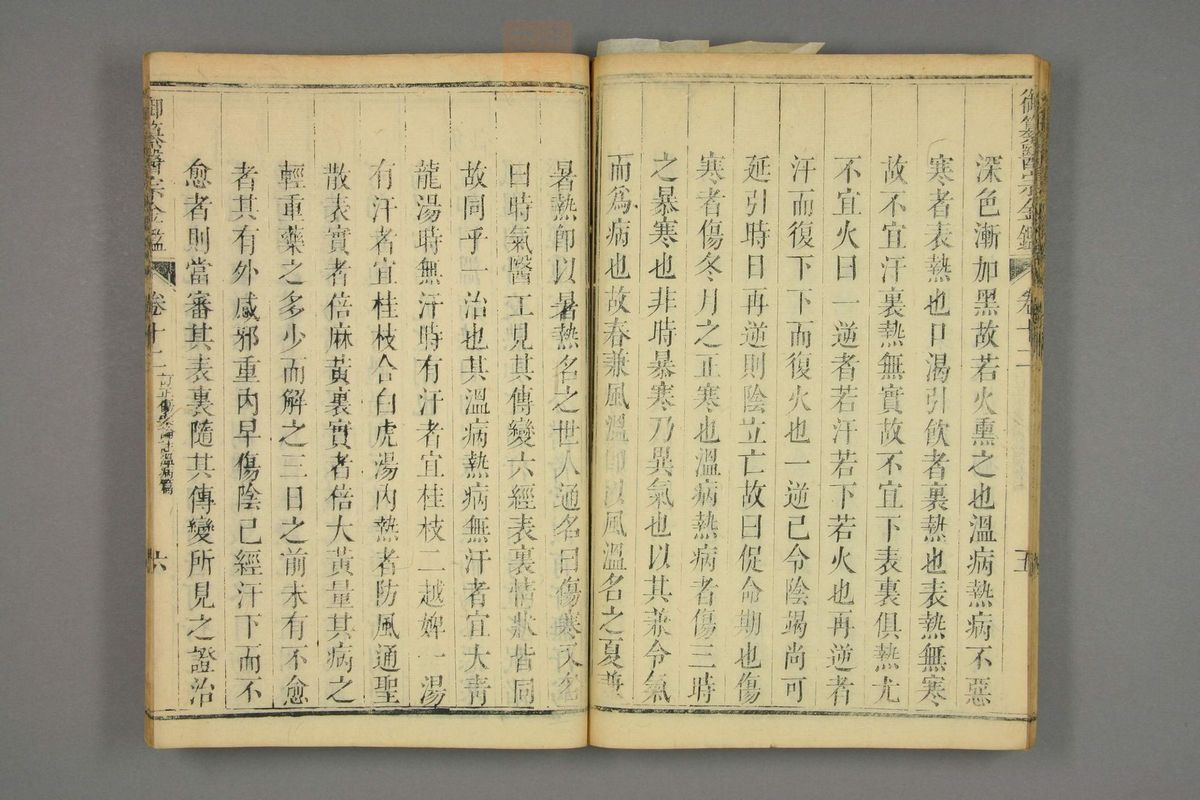 御纂醫宗金鑑 卷十二 五
深色漸加黑故若火熏之也溫病熱病不惡
寒者表熱也口渴引飲者裏熱也表熱無寒
故不宜汗裏熱無實故不宜下表裏俱熱尤
不宜火曰一逆者若汗若下若火也再逆者
汗而復下下而復火也一逆已令陰竭尚可
延引時日再逆則陰立亡故曰促命期也傷
寒者傷冬月之正寒也溫病熱病者傷三時
之暴寒也非時暴寒乃異氣也以其兼令氣
而爲病也故春兼風溫即以風溫名之夏兼
暑熱即以暑熱名之世人通名曰傷寒又名
曰時氣醫工見其傳變六經表裏情狀皆同
故同乎一治也其溫病熱病無汗者宜大靑
龍湯時無汗時有汗者宜桂枝二越婢一湯
有汗者宜桂枝合白虎湯內熱者防風通聖
散表實者倍麻黃裏實者倍大黃量其病之
輕重藥之多少而解之三日之前未有不愈
者其有外感邪重內早傷陰已經汗下而不
愈者則當審其表裏隨其傳變所見之證治
御纂醫宗金鑑 卷十二 六